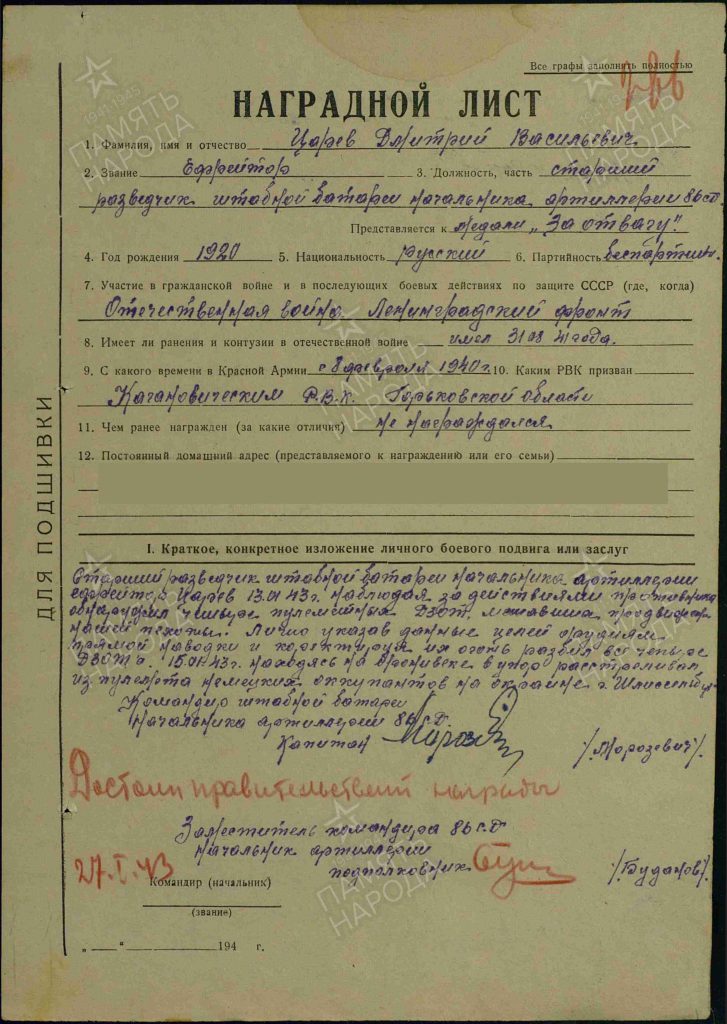 Все графы заполнять полностью
НАГРАДНОЙ ЛИСТ
1. Фамилия, имя и отчество Царев Дмитрий Васильевич
2. Звание Ефрейтор 3. Должность, часть старший
разведчик штабной батареи начальника артиллерии 86 сд.
Представляется к медали "За отвагу".
4. Год рождения 1920 5. Национальность Русский 6. Партийность
7. Участие в гражданской войне и в последующих боевых действиях по защите СССР (где, когда)
Отечественная война Ленинградский фронт
8. Имеет ли ранения и контузии в отечественной войне имел 31 08 41 года.
9. С какого времени в Красной Армии с 8 февраля 1940 г. 10. Каким РВК призван
Кагановическим Р.В.К. Горьковской области
11. Чем ранее награжден (за какие отличия) не награждался
12. Постоянный домашний адрес (представляемого к награждению или его семьи)
ДЛЯ ПОДШИВКИ
I. Краткое, конкретное изложение личного боевого подвига или заслуг
Старший разведчик штабной батареи начальника артиллерии
ефрейтор Царев 13.01 43 г. наблюдая за действиями противника
обнаружил четыре пулеметных ДЗОТ,
нашей пехоты. Лично указав данные целей орудиям
прямой наводки и их огонь разбил все четыре
ДЗОТа. 15.01.43 г. находясь на в упор расстреливал
из пулемета немецких оккупантов на окраине г.
Командир штабной батареи
начальника артиллерии 86 с.д.
Капитан /Морозевич/.
Достоин правительственной награды
Заместитель командира 86 с.д.
начальник артиллерии
подполковник /Буданов/.
27.I.43
Командир (начальник)
(звание)
„ “ 194 г.
ПАМЯТЬ НАРОДА
1941-1945